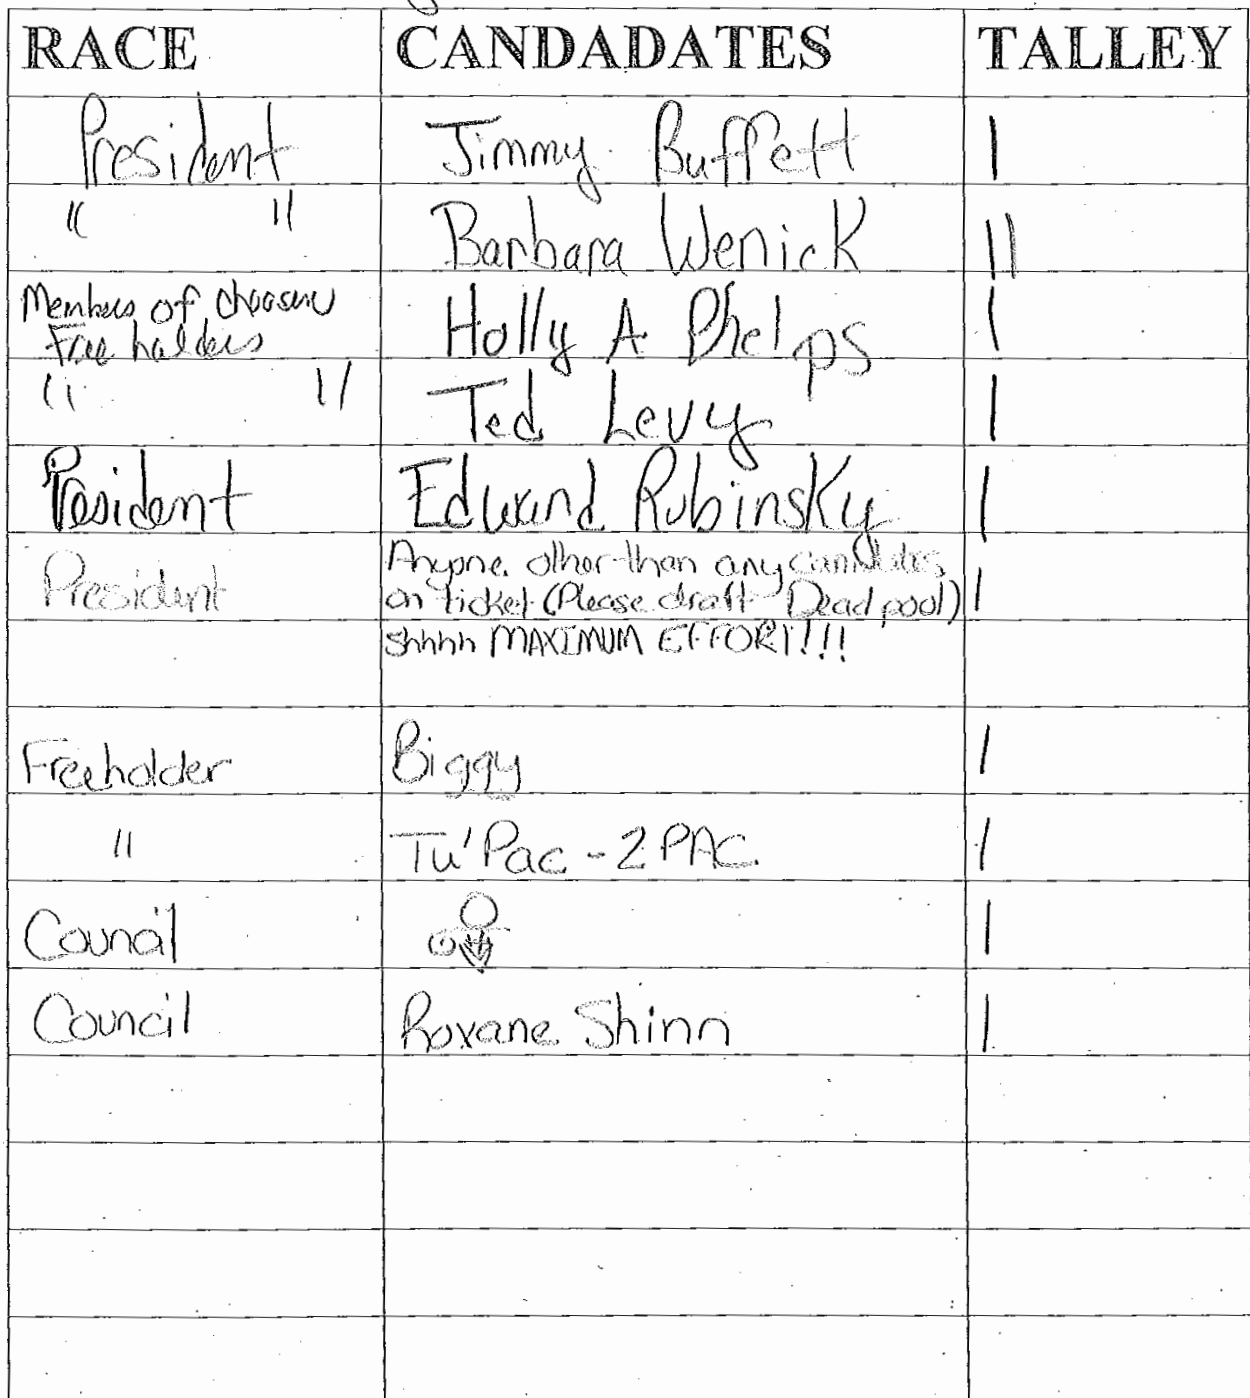 RACE CANDADATES TALLEY
President Jimmy Buffett |
" " Barbara Wenick ||
Members of choosen
Free holders Holly A Phelps |
" " Ted Levy |
President Edward Rubinsky |
President Anyone other than any candidates
on ticket (Please draft Deadpool) |
shhhh MAXIMUM EFFORT!!!
Freeholder Biggy |
" Tu'Pac - 2PAC |
Council |
Council Roxane Shinn |